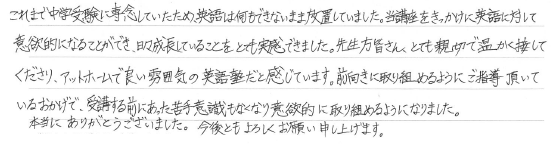 これまで中学受験に専念していたため、英語は何もできないまま放置していました。当講座をきっかけに英語に対して
意欲的になることができ、日々成長していることをとても実感できました。先生方皆さん、とても親切で温かく接して
くださり、アットホームで良い雰囲気の英語塾だと感じています。前向きに取り組めるようにご指導頂いて
いるおかげで、受講する前にあった苦手意識もなくなり意欲的に取り組めるようになりました。
本当にありがとうございました。今後ともよろしくお願い申し上げます。